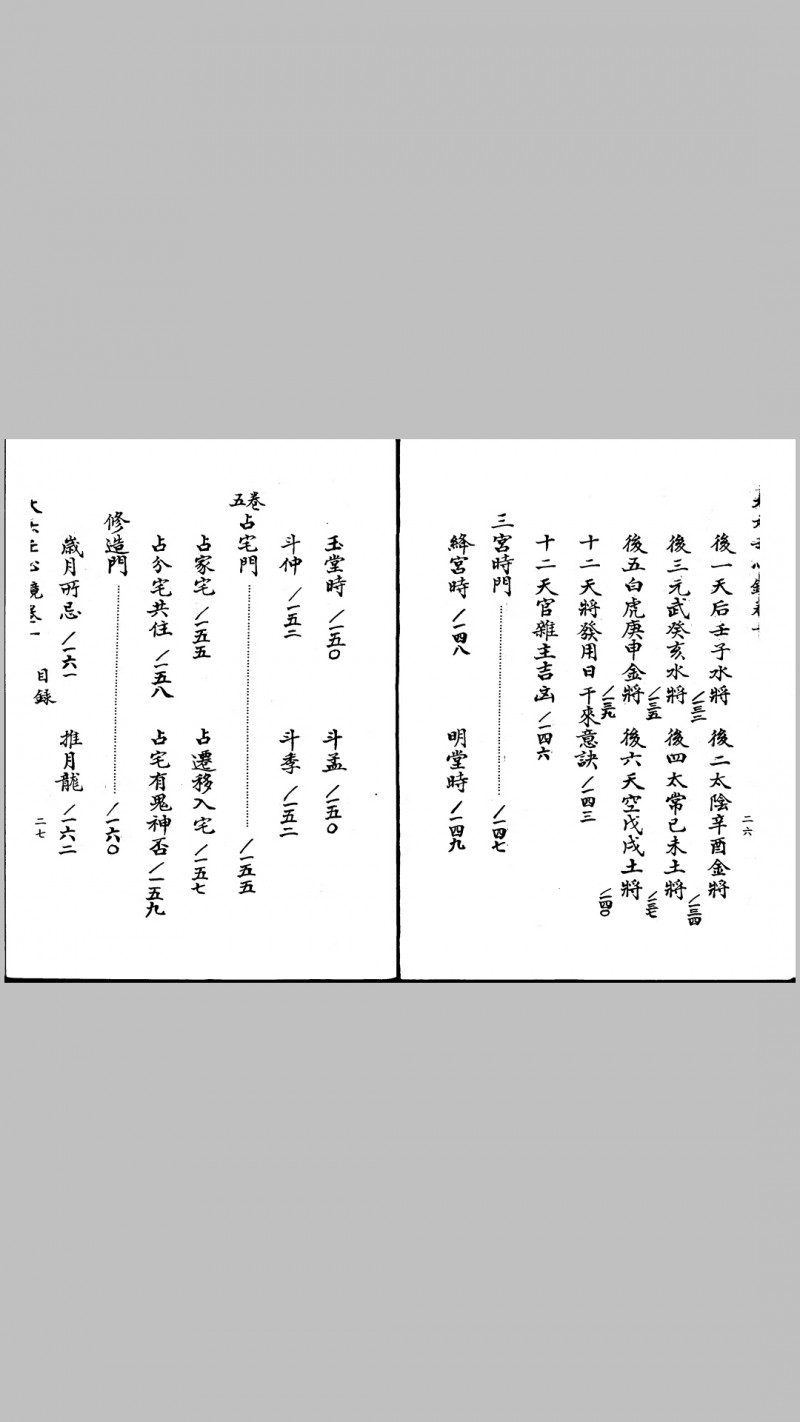 二六
後一天后壬子水將/一三二 後二太陰辛酉金將/一三四
後三元武癸亥水將/一三五 後四太常己未土將/一三七
後五白虎庚申金將/一三九 後六天空戊戌土將/一四〇
十二天將發用日干來意訣/一四三
十二天官雜主吉凶/一四六
三宮時門/一四七
絳宮時/一四八 明堂時/一四九
玉堂時/一五〇 斗孟/一五〇
斗仲/一五二 斗季/一五二
卷五 占宅門/一五五
占家宅/一五五 占遷移入宅/一五七
占分宅共住/一五八 占宅有鬼神否/一五九
修造門/一六〇
歲月所忌/一六一 推月龍/一六二
目錄 二七